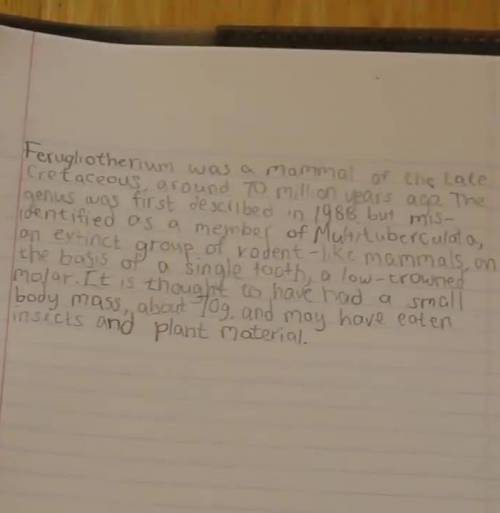 Ferugliotherium was a mammal of the Late
Cretaceous, around 70 million years ago. The
genus was first described in 1986 but mis-
identified as a member of Multituberculata,
an extinct group of rodent-like mammals, on
the basis of a single tooth, a low-crowned
molar. It is thought to have had a small
body mass, about 70g, and may have eaten
insects and plant material.